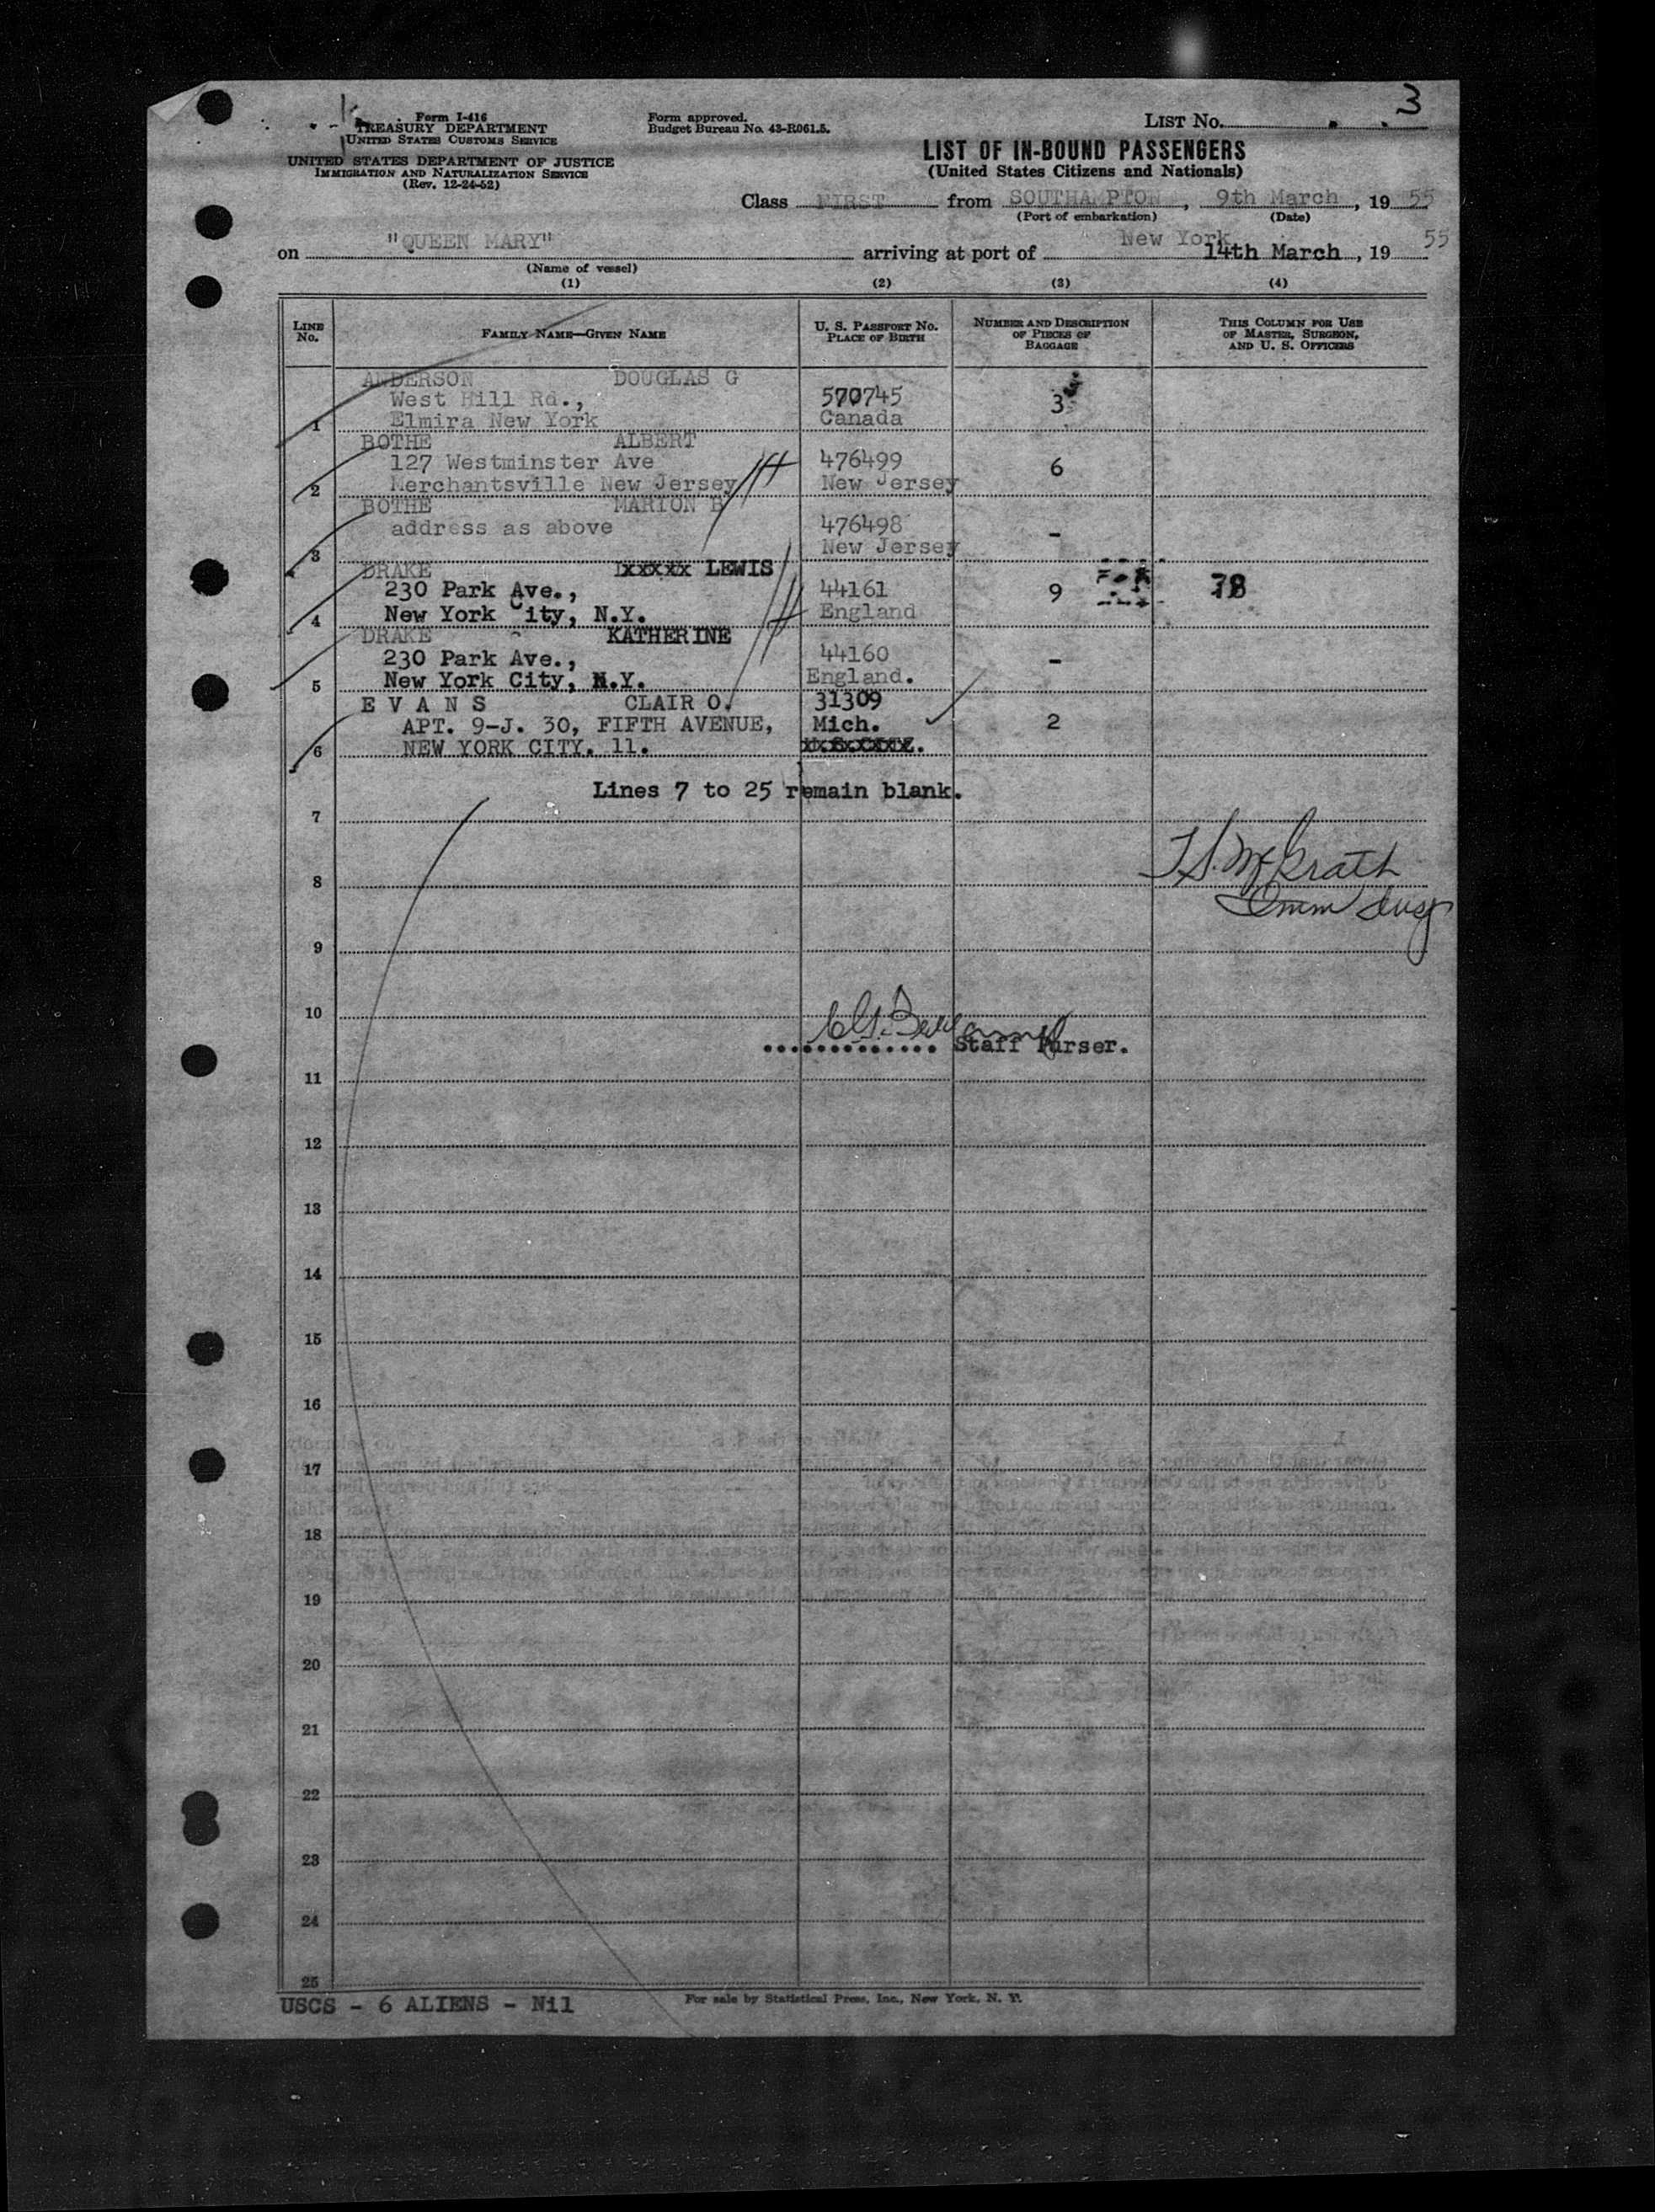 3
Form I-416
TREASURY DEPARTMENT
UNITED STATES CUSTOMS SERVICE
UNITED STATES DEPARTMENT OF JUSTICE
IMMIGRATION AND NATURALIZATION SERVICE
(Rev. 12-24-52)
Form approved.
Budget Bureau No. 43-R061.5.
LIST No.
LIST OF IN-BOUND PASSENGERS
(United States Citizens and Nationals)
Class FIRST from SOUTHAMPTON, 9th March, 19 55
(Port of embarkation) (Date)
on "QUEEN MARY" arriving at port of New York 14th March, 19 55
(Name of vessel)
(1) (2) (3) (4)
LINE No. FAMILY NAME—GIVEN NAME U. S. PASSPORT No. PLACE OF BIRTH NUMBER AND DESCRIPTION OF PIECES OF BAGGAGE THIS COLUMN FOR USE OF MASTER, SURGEON, AND U. S. OFFICERS
ANDERSON DOUGLAS G
West Hill Rd., 570745 3
1 Elmira New York Canada
BOTHE ALBERT
127 Westminster Ave 476499 6
2 Merchantsville New Jersey New Jersey
BOTHE MARION B
address as above 476498 -
3 New Jersey
DRAKE LEWIS
230 Park Ave., 44161 9 78
4 New York City, N.Y. England
DRAKE KATHERINE
230 Park Ave., 44160 -
5 New York City, N.Y. England.
E V A N S CLAIR O. 31309
APT. 9-J. 30, FIFTH AVENUE, Mich. 2
6 NEW YORK CITY. 11.
Lines 7 to 25 remain blank.
7
T.S. McGrath
8
Imm Insp
9
10
Staff Purser.
11
12
13
14
15
16
17
18
19
20
21
22
23
24
25
USCS - 6 ALIENS - Nil
For sale by Statistical Press, Inc., New York, N. Y.